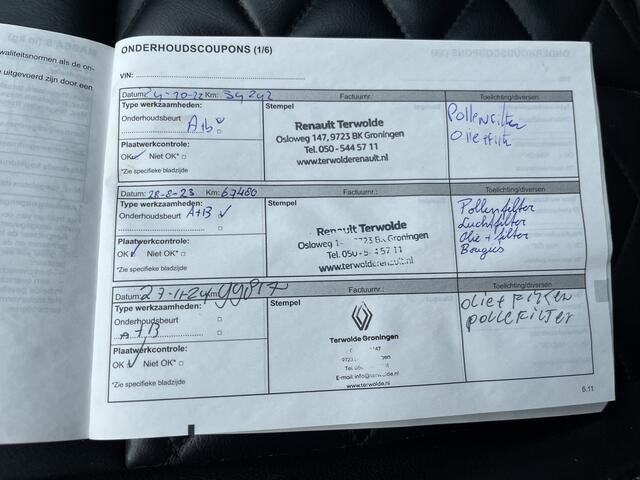 waliteitsnormen als de on-
uitgevoerd zijn door een
ONDERHOUDSCOUPONS (1/6)
VIN:
Datum: 24-10-22 Km: 34242 Factuurnr.: Toelichting/diversen
Type werkzaamheden:
Onderhoudsbeurt
A+b
Plaatwerkcontrole:
OK Niet OK*
*Zie specifieke bladzijde
Stempel
Renault Terwolde
Osloweg 147, 9723 BK Groningen
Tel. 050 - 544 57 11
www.terwolderenault.nl
Pollenfilter
Oliefilter
Datum: 28-8-23 Km: 67480 Factuurnr.: Toelichting/diversen
Type werkzaamheden:
Onderhoudsbeurt A+B
Plaatwerkcontrole:
OK Niet OK*
*Zie specifieke bladzijde
Stempel
Renault Terwolde
Osloweg 1 9723 BK Groningen
Tel. 050 - 5 4 57 11
www.terwolderenault.nl
Pollenfilter
Luchtfilter
Olie + filter
Bougies
Datum: 27-11-24 Factuurnr.: Toelichting/diversen
Type werkzaamheden:
Onderhoudsbeurt
A+B
Plaatwerkcontrole:
OK Niet OK*
*Zie specifieke bladzijde
Stempel
Terwolde Groningen
47
9723 gen
Tel. 05
E-mail: info@terwolde.nl
www.terwolde.nl
pollefilter
6.11